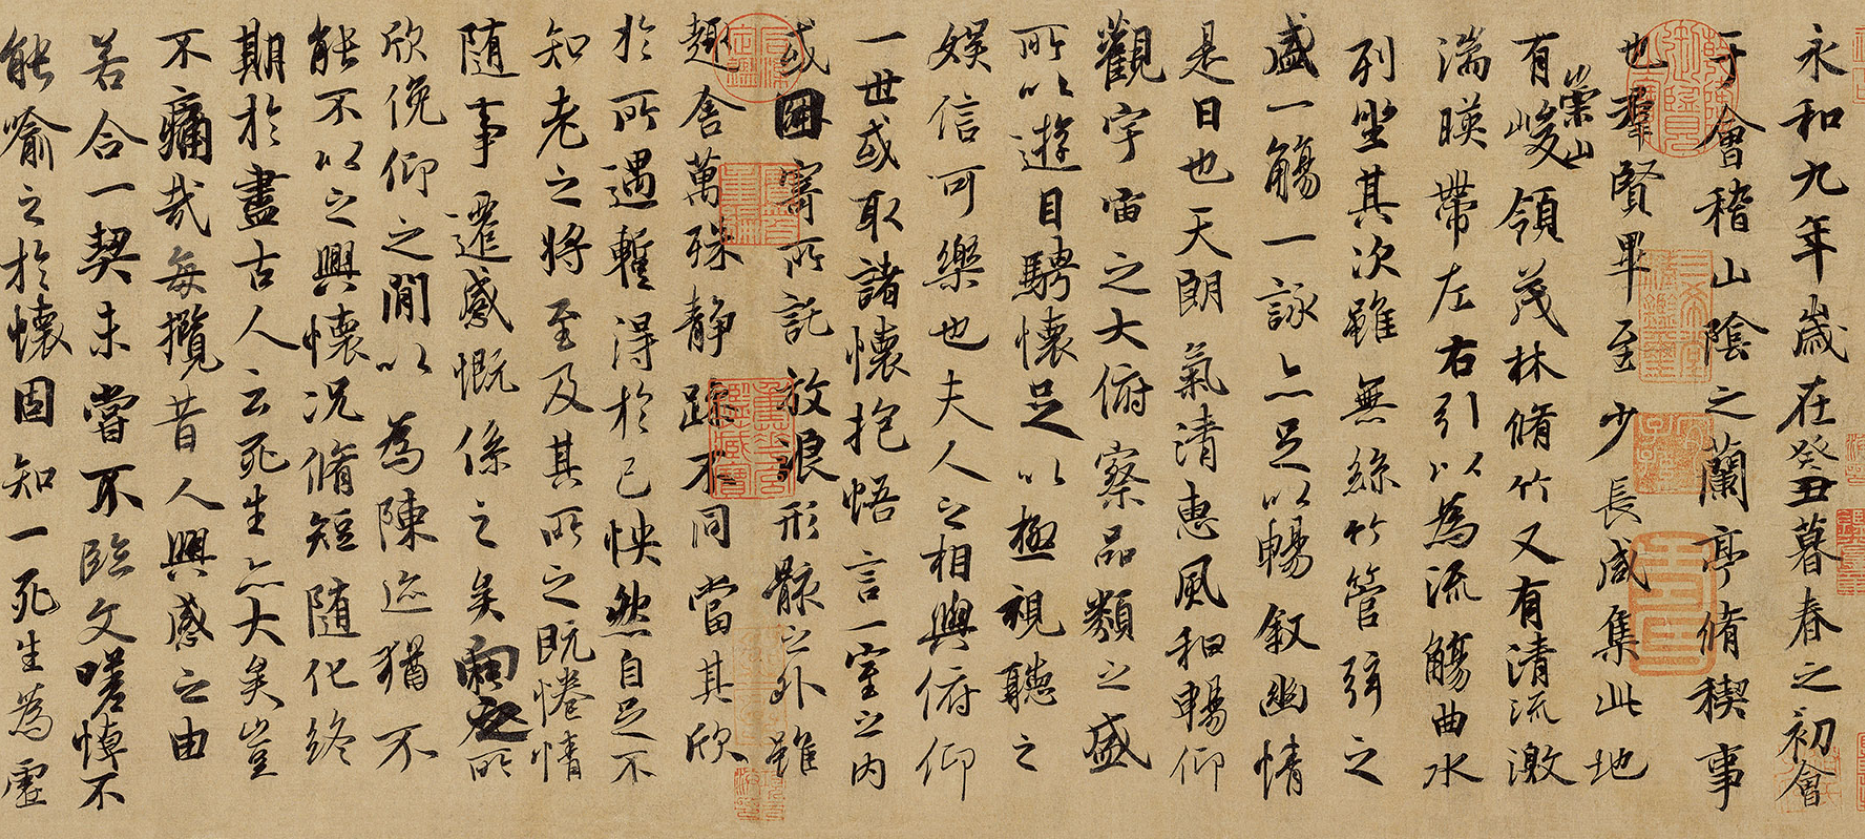 永和九年歲在癸丑暮春之初會
于會稽山陰之蘭亭脩稧事
也羣賢畢至少長咸集此地
有崇山峻領茂林脩竹又有清流激
湍暎帶左右引以為流觴曲水
列坐其次雖無絲竹管弦之
盛一觴一詠亦足以暢叙幽情
是日也天朗氣清惠風和暢仰
觀宇宙之大俯察品類之盛
所以遊目騁懷足以極視聽之
娛信可樂也夫人之相與俯仰
一世或取諸懷抱悟言一室之內
或因寄所託放浪形骸之外雖
趣舍萬殊静躁不同當其欣
於所遇暫得於己怏然自足不
知老之將至及其所之既惓情
隨事遷感慨係之矣向之所
欣俛仰之閒以為陳迹猶不
能不以之興懷况脩短隨化終
期於盡古人云死生亦大矣豈
不痛哉每攬昔人興感之由
若合一契未嘗不臨文嗟悼不
能喻之於懷固知一死生為虛